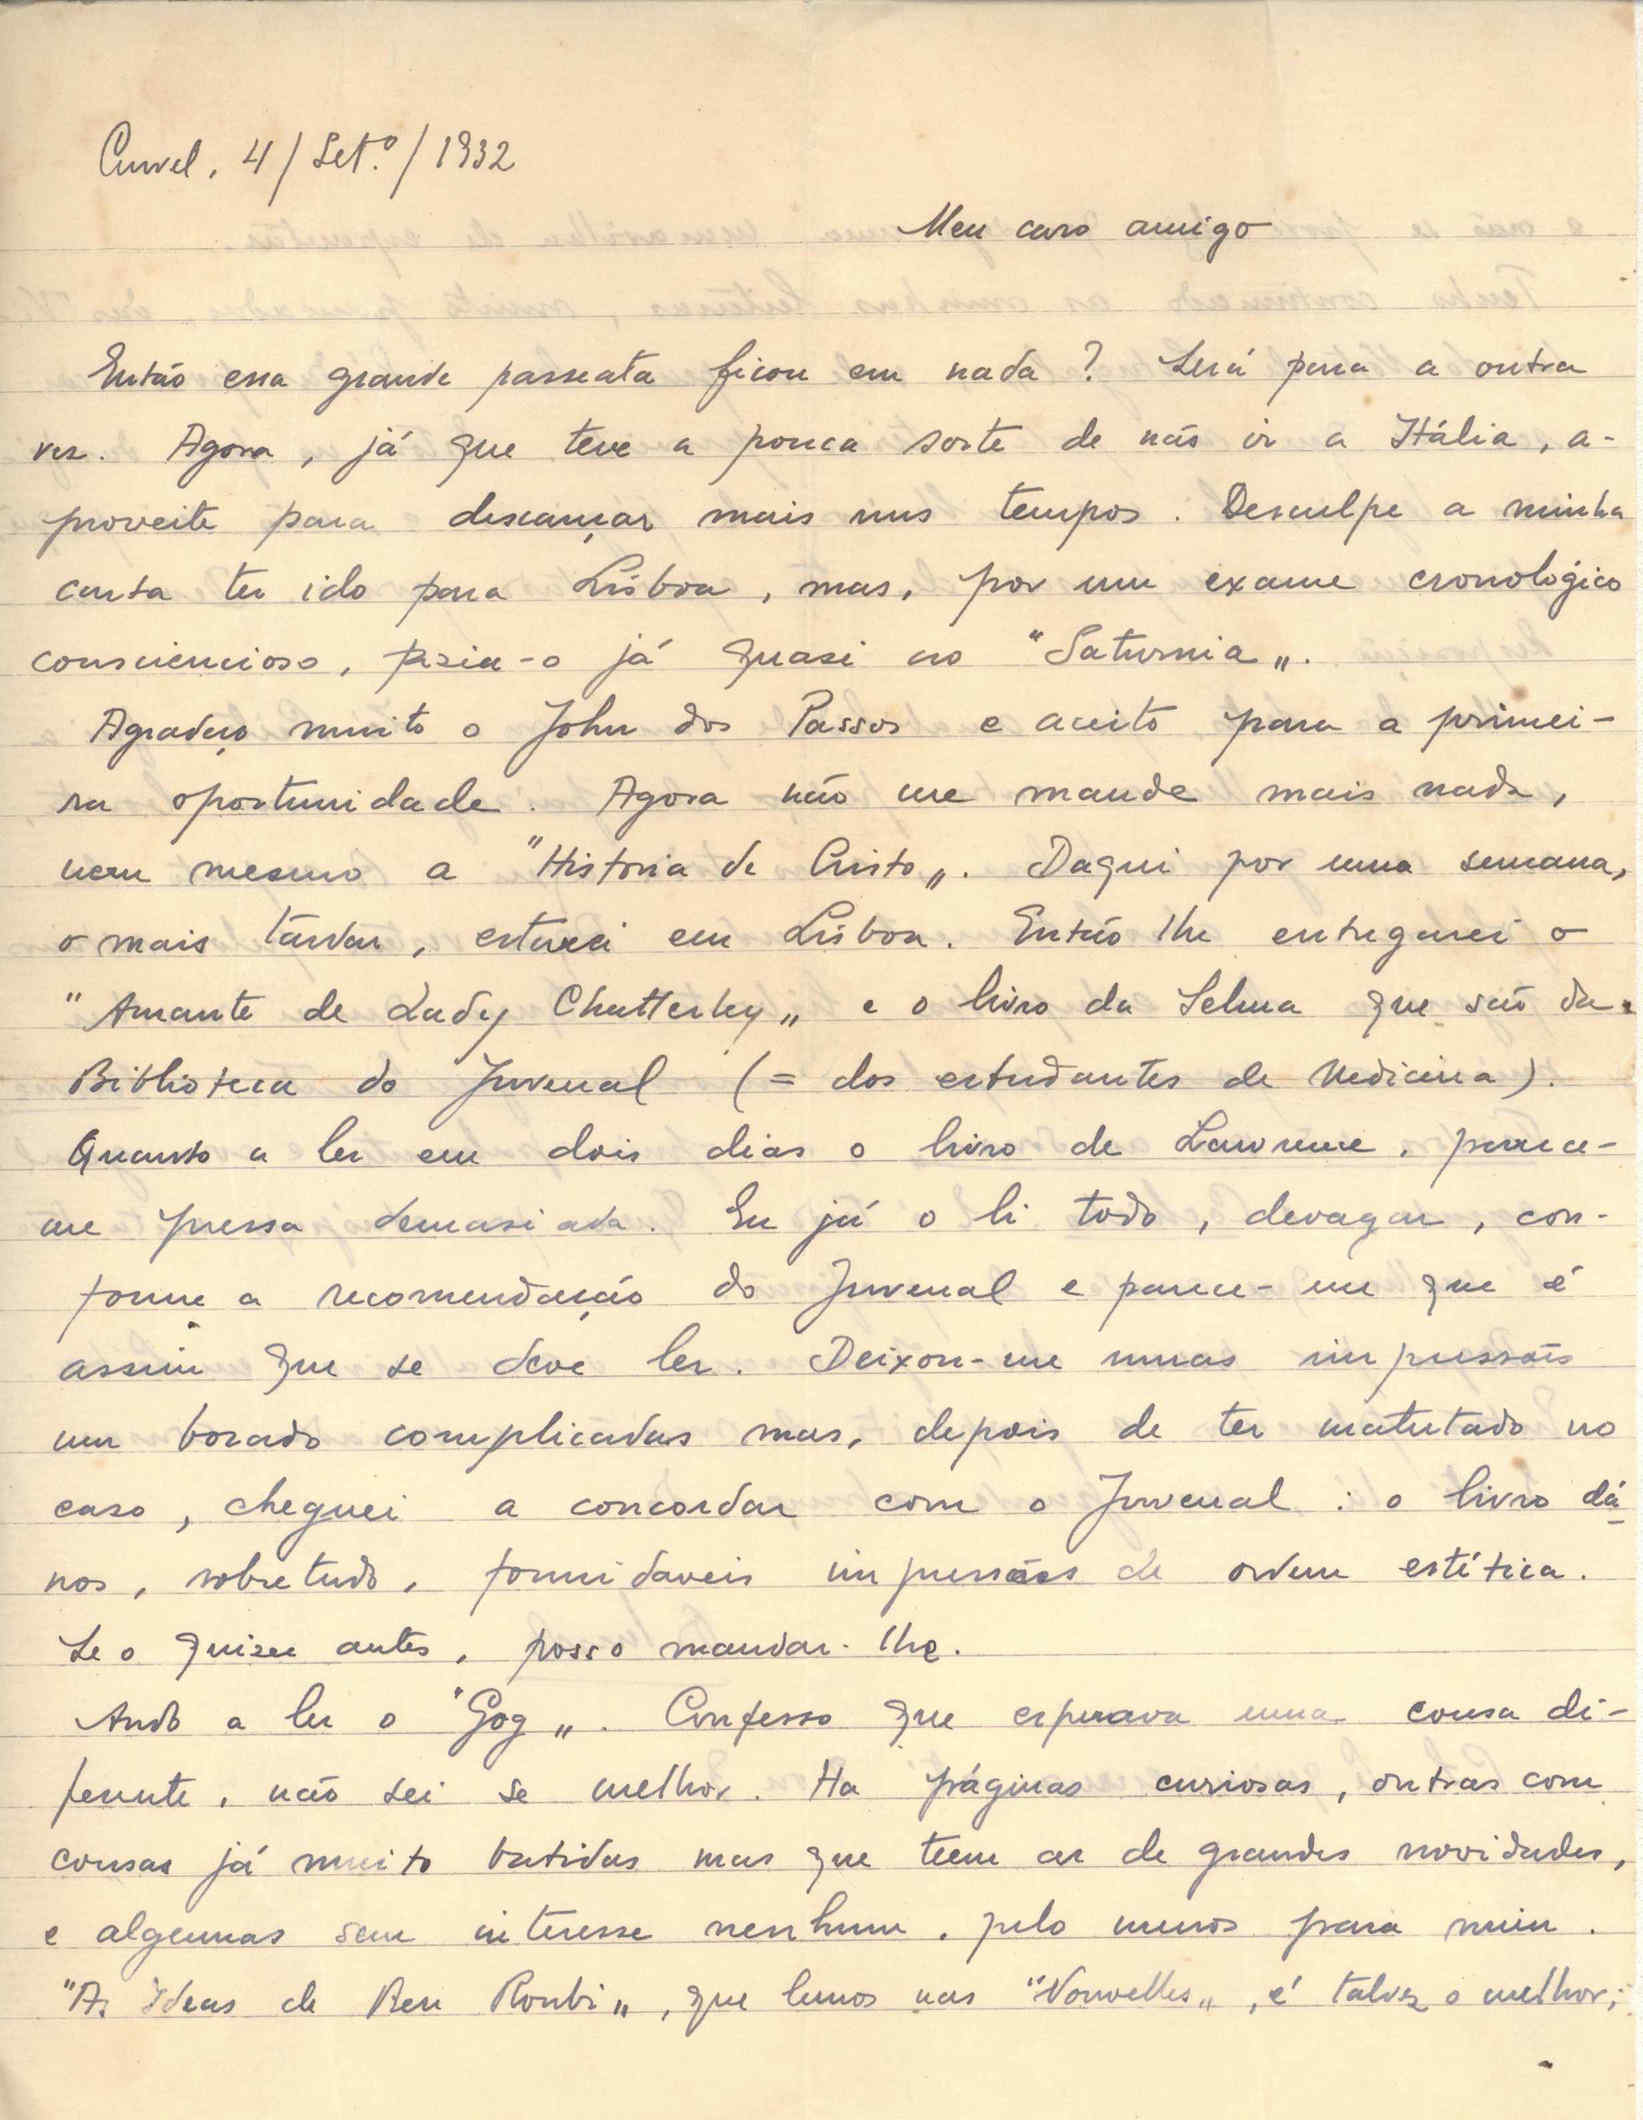 Curvel, 4/Set.º/1932
Meu caro amigo
Então essa grande passeata ficou em nada? Será para a outra
vez. Agora, já que teve a pouca sorte de não ir a Itália, a-
proveite para descançar mais uns tempos. Desculpe a minha
carta ter ido para Lisboa, mas, por um exame cronológico
consciencioso, fazia-o já quasi no "Saturnia„.
Agradeço muito o John dos Passos e aceito para a primei-
ra oportunidade. Agora não me mande mais nada,
nem mesmo a "Historia de Cristo„. Daqui por uma semana,
o mais tárdar, estarei em Lisboa. Então lhe entregarei o
"Amante de Lady Chatterley„ e o livro da Selma que são da
Biblioteca do Juvenal (= dos estudantes de Medicina).
Quanto a ler em dois dias o livro de Lawrence, parece-
me pressa demasiada. Eu já o li todo, devagar, con-
forme a recomendação do Juvenal e parece-me que é
assim que se deve ler. Deixou-me umas impressões
um bocado complicadas mas, depois de ter matutado no
caso, cheguei a concordar com o Juvenal: o livro dá
nos, sobretudo, formidaveis impressões de ordem estética.
Se o quizer antes, posso mandar-lhe.
Ando a ler o "Gog„. Confesso que esperava uma cousa di-
ferente, não sei se melhor. Ha páginas curiosas, outras com
cousas já muito batidas mas que teem ar de grandes novidades,
e algumas sem interesse nenhum, pelo menos para mim.
"As Ideas de Ben Roubi„, que lemos nas "Nouvelles„, é talvez o melhor;